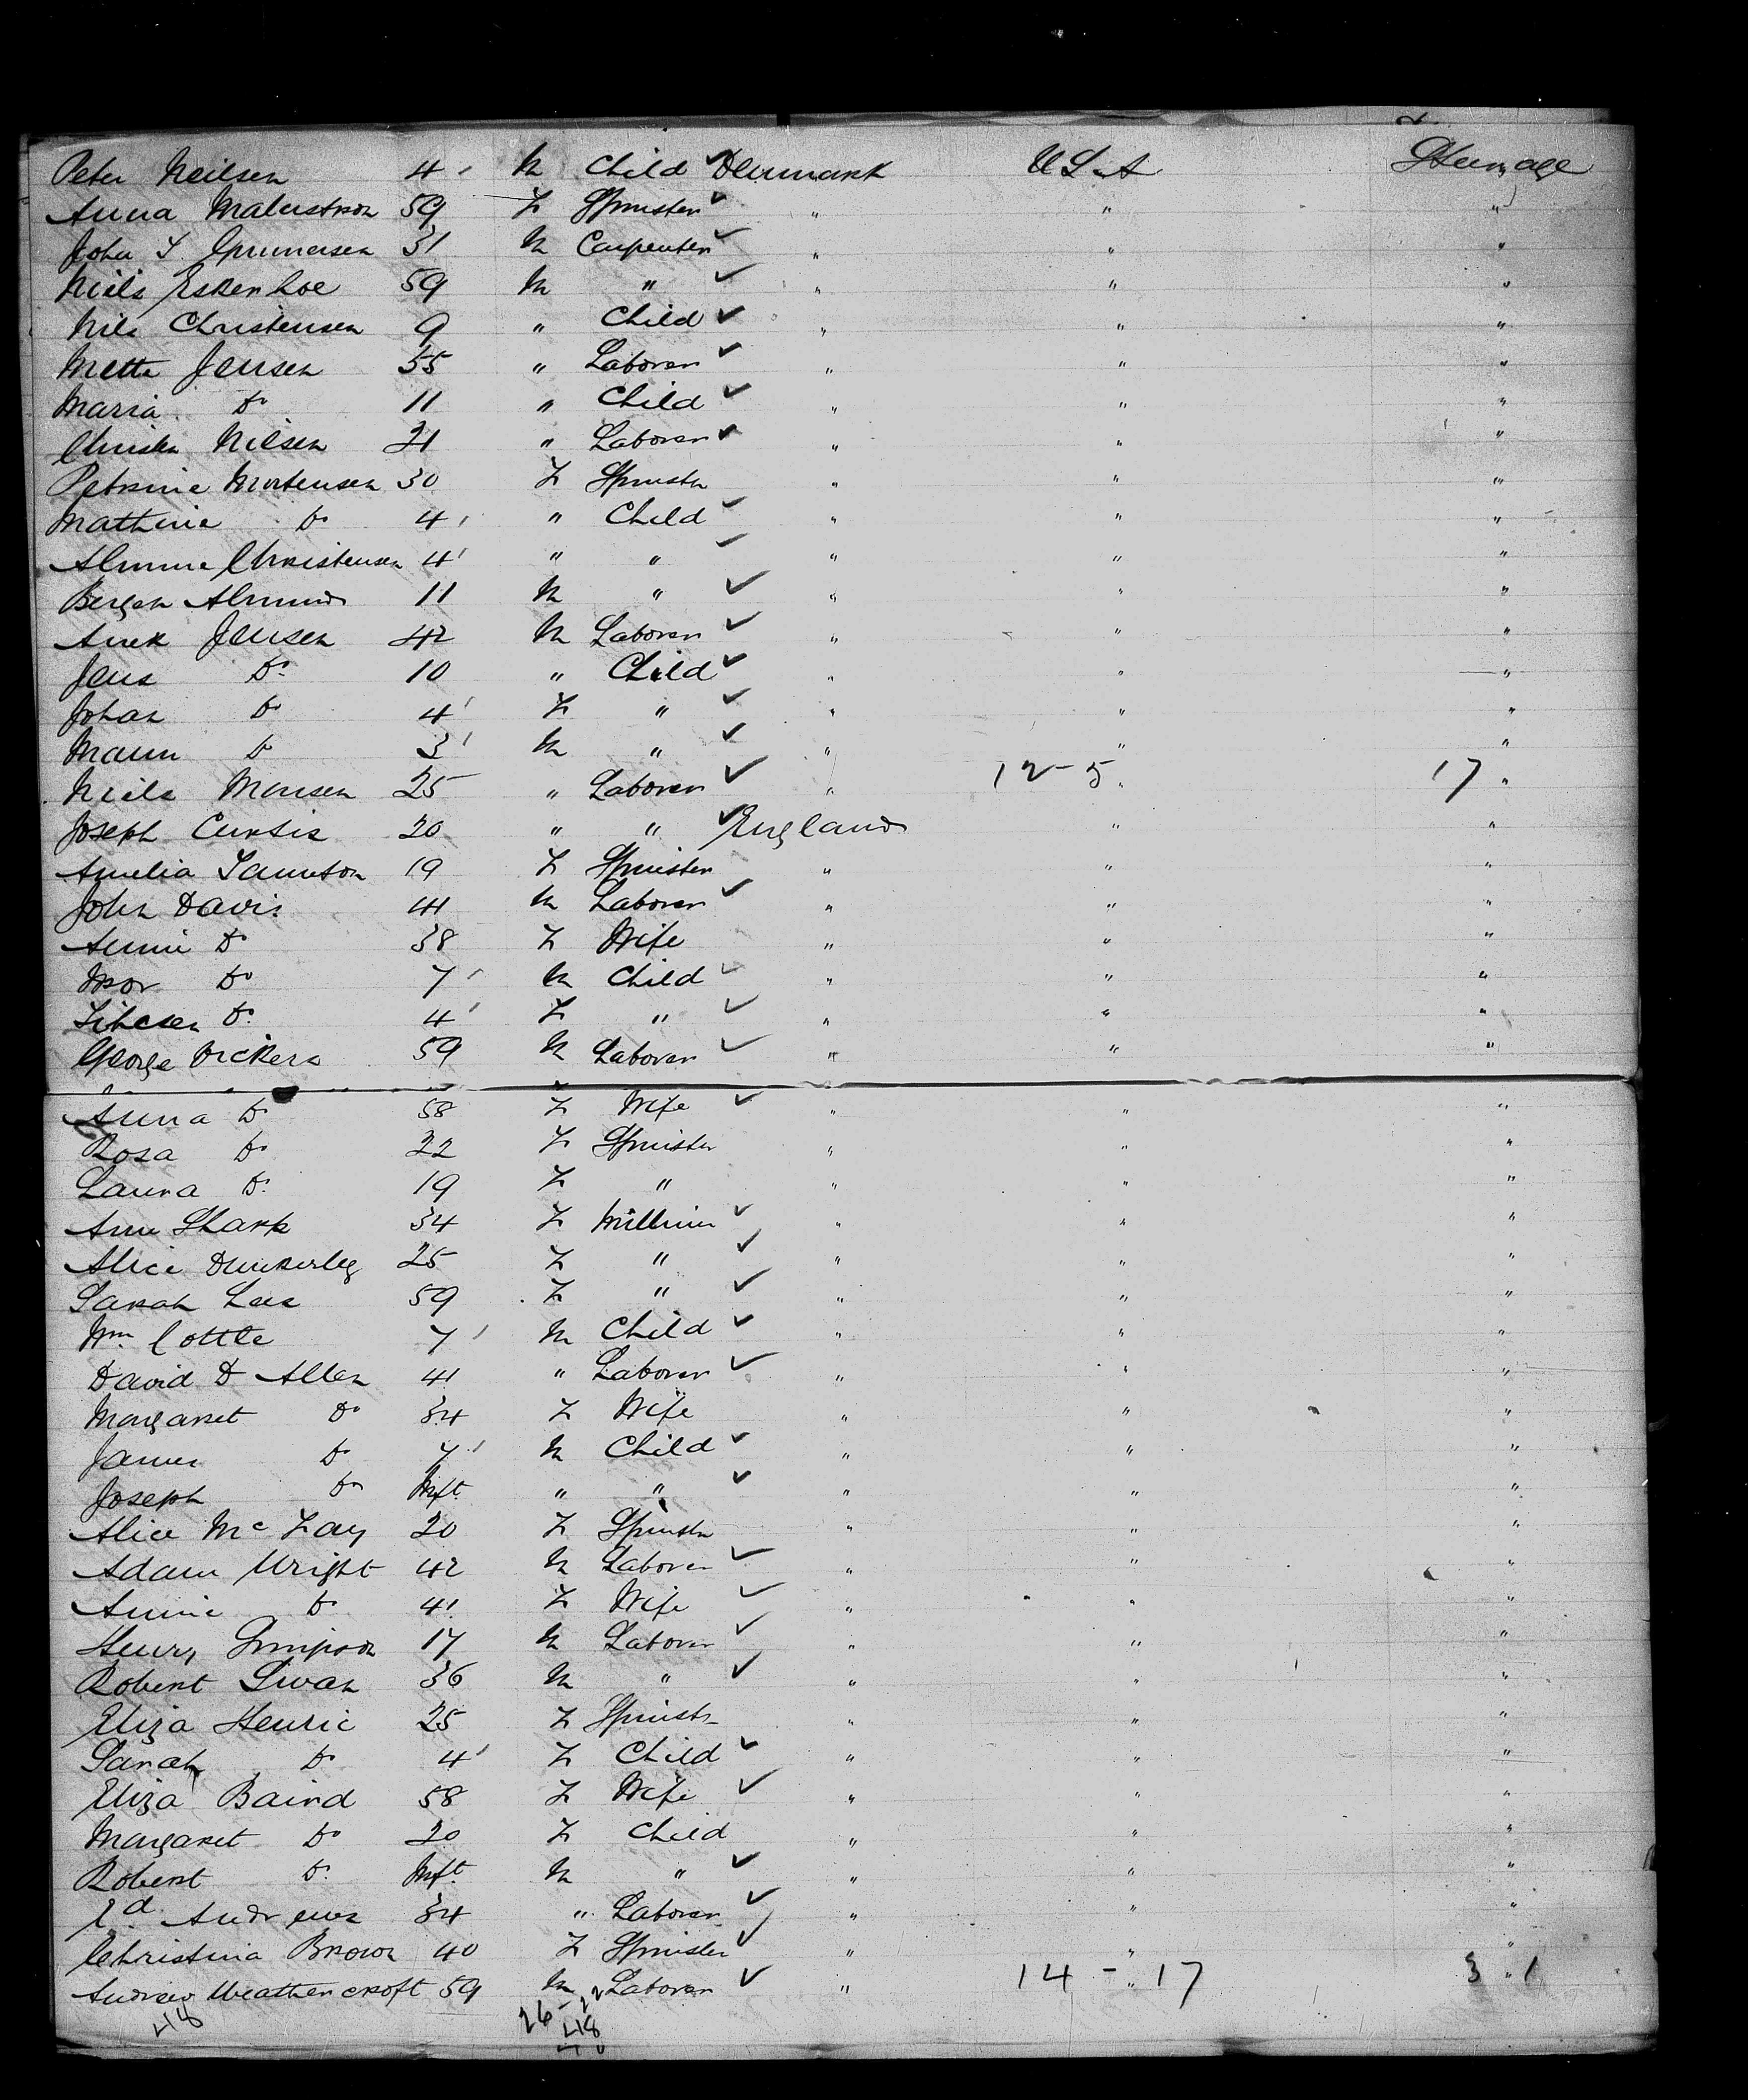 Peter Neilsen 4 M Child Denmark U S A Steerage
Anna Malmstrom 59 F Spinster " " "
John F. Gunnersen 31 M Carpenter " " "
Niels Eskenhoe 59 M " " " "
Nils Christensen 9 " Child " " "
Mette Jensen 55 " Laborer " " "
Maria Do 11 " Child " " "
Nilsen 21 " Laborer " " "
Petrine Mortensen 30 F Spinstr " " "
Mathine Do 4 " Child " " "
Christensen 4 " " " " "
11 M " " " "
Jensen 42 M Laborer " " "
Jens Do 10 " Child " " "
Johan Do 4 F " " " "
Do 3 M " " " "
Niels Monsen 25 " Laborer " 12-5 " 17 "
Joseph Curtis 20 " " England " "
Amelia 19 F Spinster " " "
John Davis 41 M Laborer " " "
Annie Do 38 F Wife " " "
Do 7 M Child " " "
Do 4 F " " " "
George Vickers 59 M Laborer " " "
Anna Do 58 F Wife " " "
Rosa Do 22 F Spinster " " "
Laura Do 19 F " " " "
Ann Sharp 34 F Milliner " " "
Alice Dunkerley 25 F " " " "
Sarah Lees 59 F " " " "
Wm. Cottle 7 M Child " " "
David D Allen 41 " Laborer " " "
Margaret Do 34 F Wife " " "
James Do 7 M Child " " "
Joseph Do Inft. " " " " "
Alice Mc Fay 20 F Spinstr " " "
Adam Wright 42 M Laborer " " "
Annie Do 41 F Wife " " "
Henry Simpson 17 M Laborer " " "
Robert Swan 36 M " " " "
Eliza Henrie 25 F Spinstr " " "
Sarah Do 4 F Child " " "
Eliza Baird 58 F Wife " " "
Margaret Do 20 F Child " " "
Robert Do Inft. M " " " "
Ed. Andrews 34 " Laborer " " "
Christina Brown 40 F Spinster " " "
Andrew Weathercroft 59 M Laborer " 14 - " 17 3 " 1
48 26-22
48